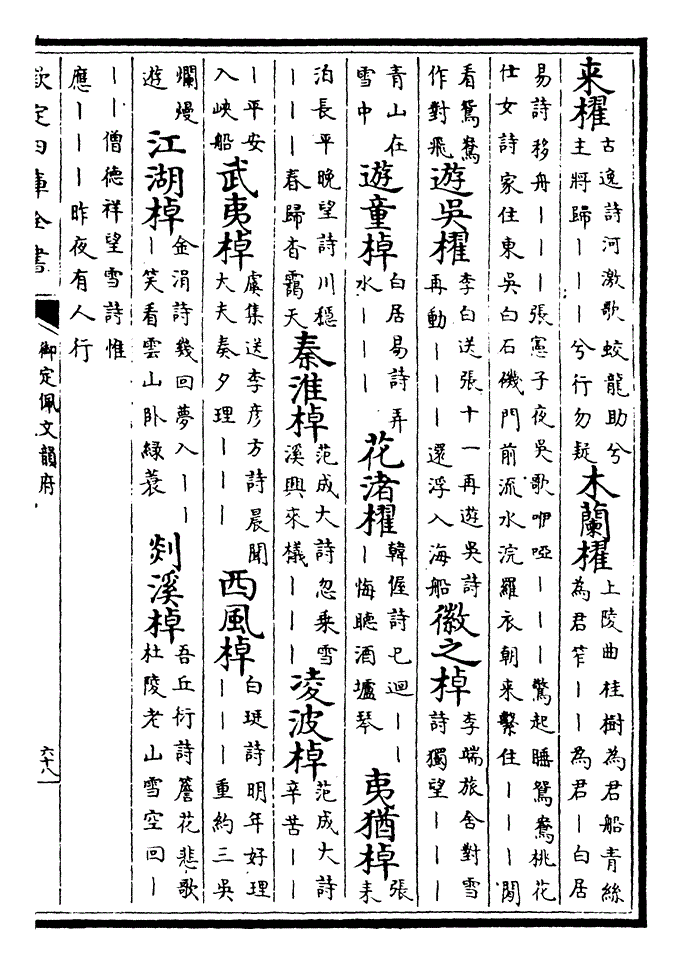 来櫂古逸詩河激歌蛟龍助兮主將歸丨丨丨兮行勿疑木蘭櫂上陵曲桂樹為君船青絲為君笮丨丨為君丨白居
易詩移舟丨丨丨張憲子夜吳歌咿啞丨丨丨驚起睡鴛鴦桃花
仕女詩家住東吳白石磯門前流水浣羅衣朝來繫住丨丨丨閒
看鴛鴦作對飛遊吳櫂李白送張十一再遊吳詩再動丨丨丨還浮入海船徽之棹李端旅舍對雪詩獨望丨丨丨
青山在雪中遊童棹白居易詩弄水丨丨丨花渚櫂韓偓詩已迴丨丨丨悔聽酒壚琴夷猶棹張耒
泊長平晚望詩川穩丨丨丨春歸杳靄天秦淮棹范成大詩忽乘雪溪興來檥丨丨丨凌波棹范成大詩辛苦丨丨
丨平安入峽船武夷棹虞集送李彥方詩晨聞大夫奏夕理丨丨丨西風棹白珽詩明年好理丨丨丨重約三吳
爛熳遊江湖棹金涓詩幾回夢入丨丨丨笑看雲山卧綠蓑剡溪棹吾丘衍詩簷花悲歌杜陵老山雪空回丨
丨丨僧德祥望雪詩惟應丨丨丨昨夜有人行
欽定四庫全書
御定佩文韻府
六十八